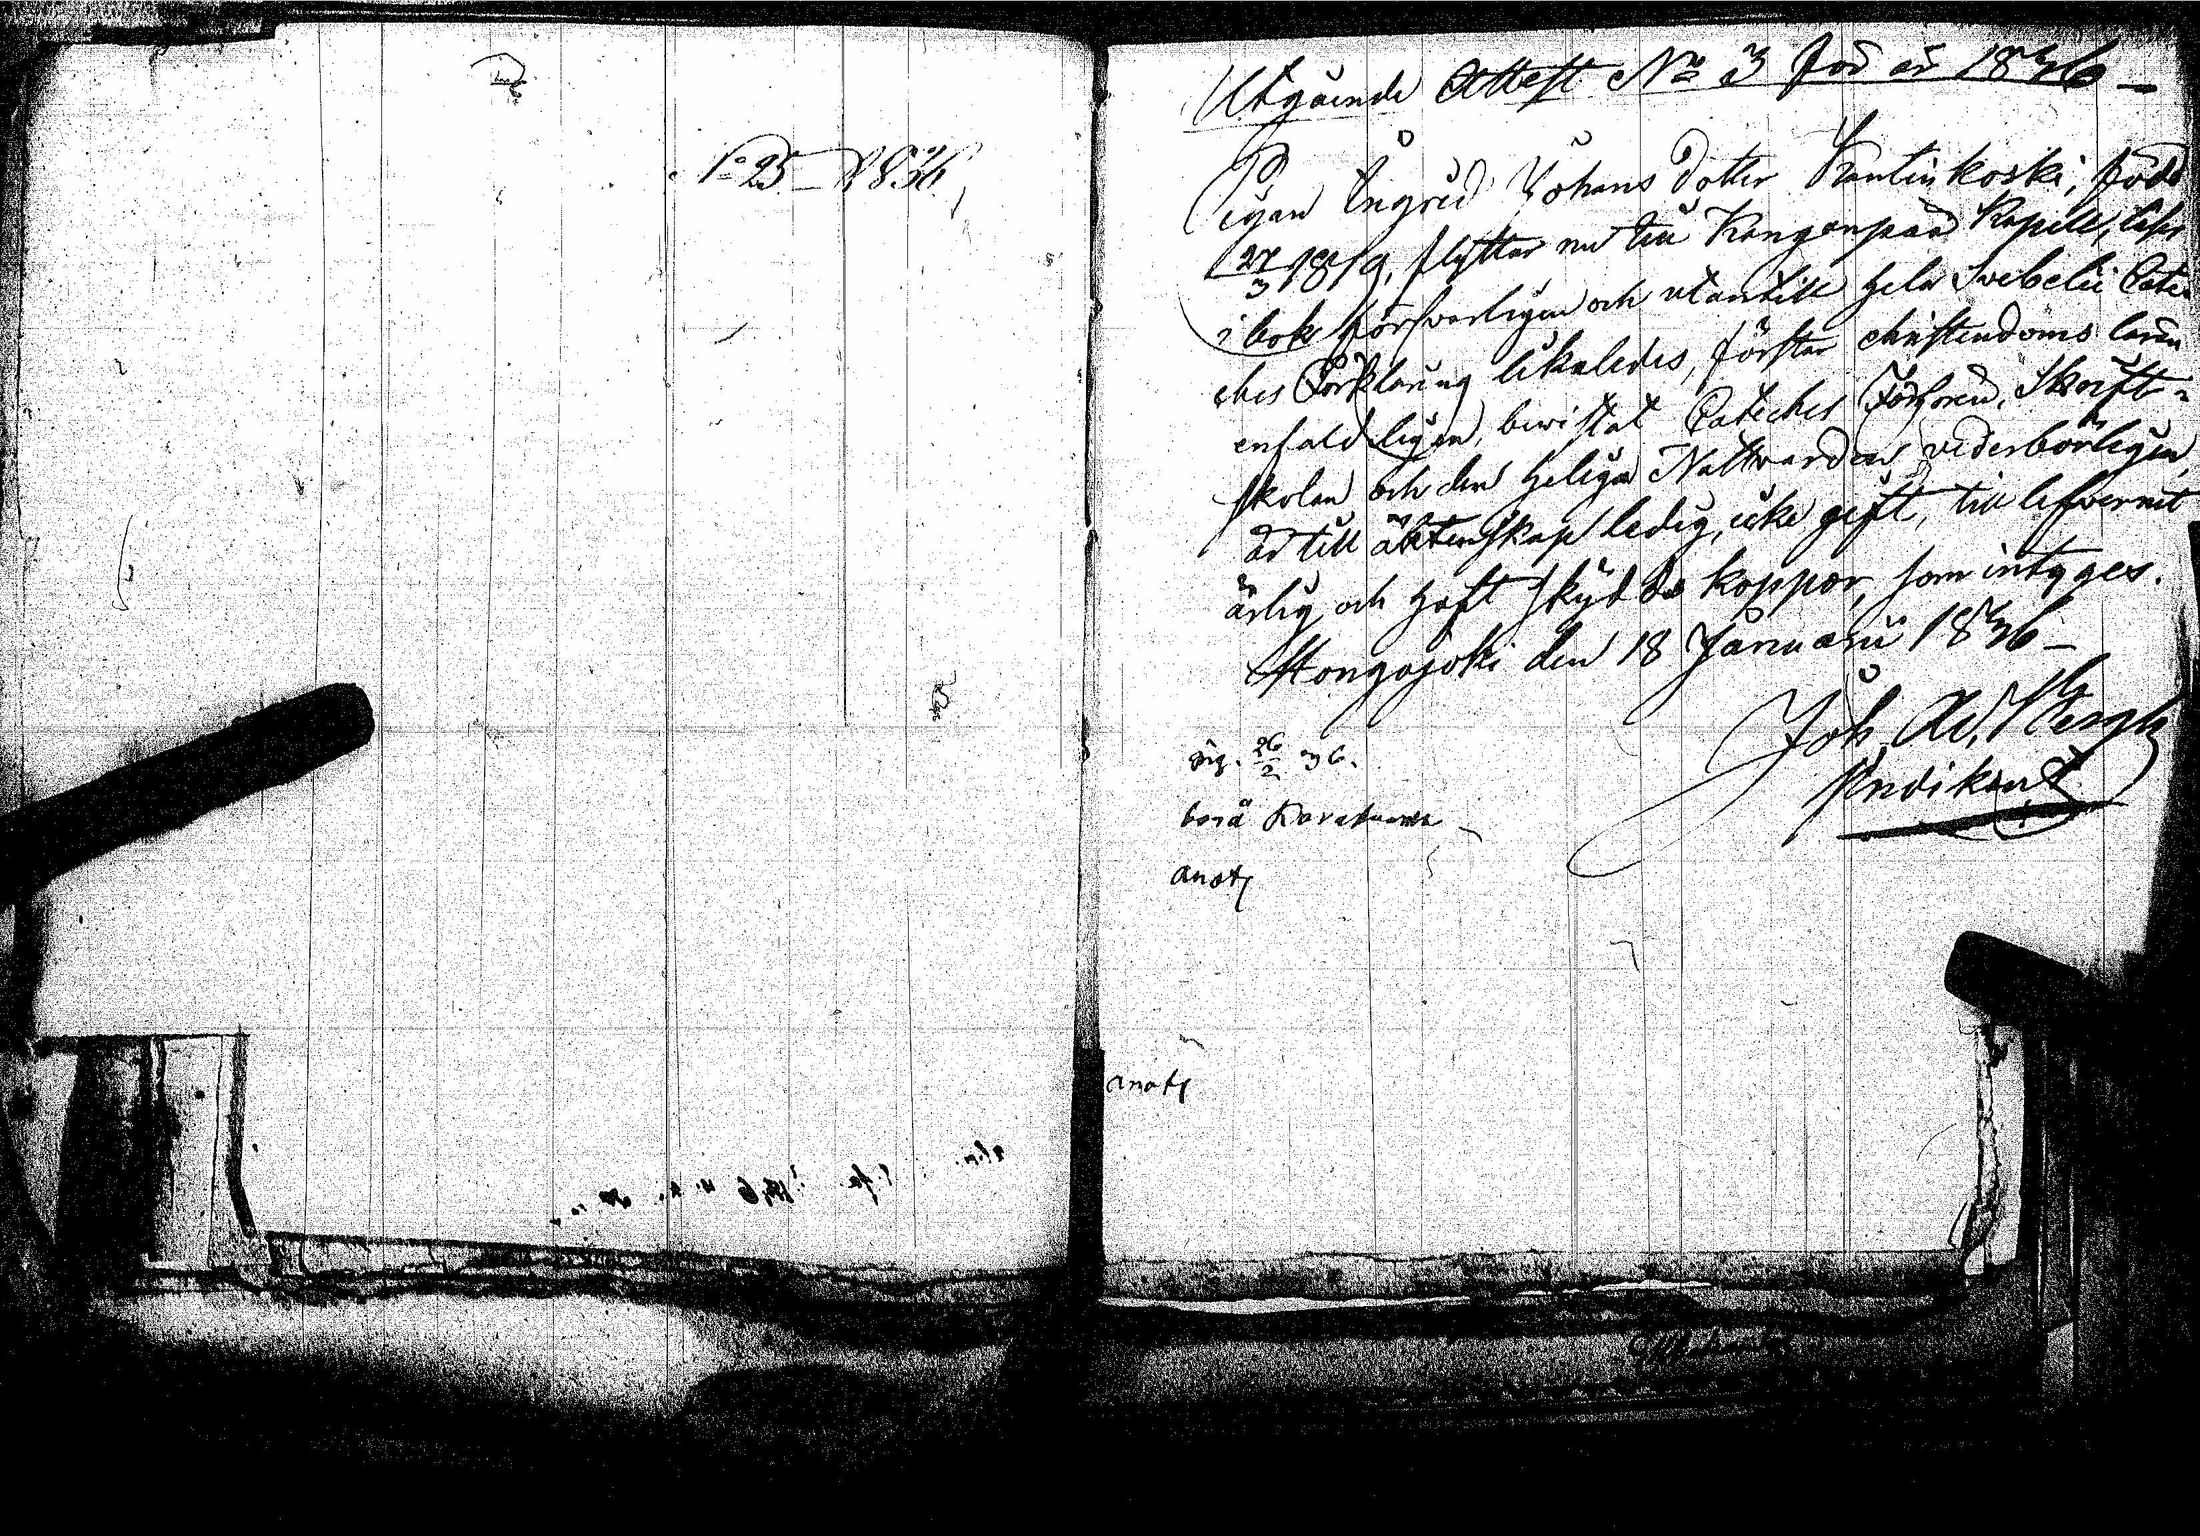 No 25 1836
Utgående Attest No 3 för år 1836
Pigan Ingrid Johans dotter Kantinkoski, född
27/3 1819, flyttar nu till Kangonpää Kapell, läser
i bok försvarligen och utantill hela Svebelii Cate-
ches Förklaring likaledes, förstår christendoms läran
enfaldligen, bewistat Cateches Förhören, Skrift-
skolan och den Heliga Nattvarden vederbörligen,
är till äktenskap ledig, icke gift, till lefvernet
ärlig och haft skydds koppor, som intyges.
Hongojoki den 18 Januarii 1836
Joh. Ad. Bergh
Predikant
26/2 36.
anot
anot